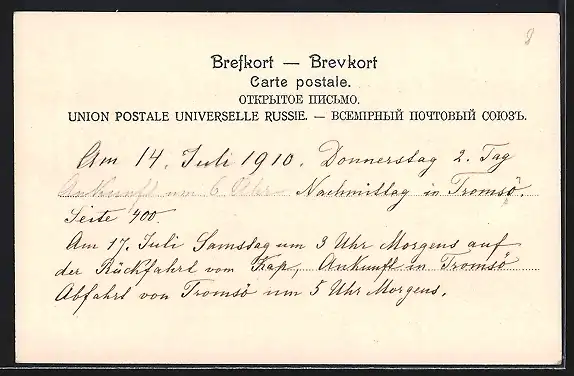 Brefkort — Brevkort
Carte postale.
ОТКРЫТОЕ ПИСЬМО.
UNION POSTALE UNIVERSELLE RUSSIE. — ВСЕМІРНЫЙ ПОЧТОВЫЙ СОЮЗЪ.
Am 14. Juli 1910. Donnerstag 2. Tag
Ankunft um 6 Uhr Nachmittag in Tromsö.
Seite 400
Am 17. Juli Samstag um 3 Uhr Morgens auf
der Rückfahrt vom Kap, Ankunft in Tromsö
Abfahrt von Tromsö um 5 Uhr Morgens.